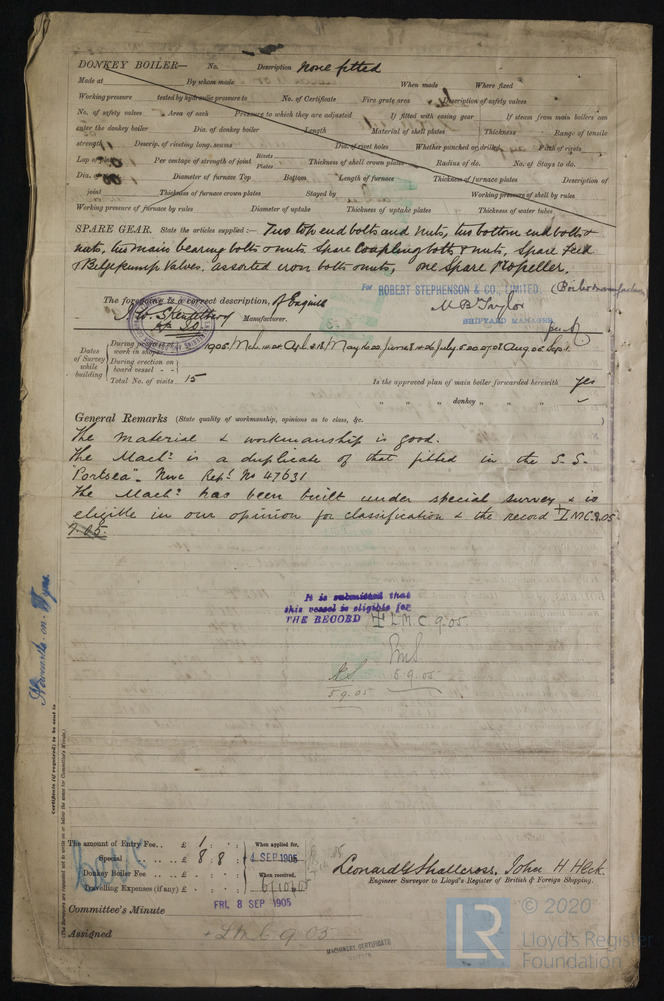 DONKEY BOILER— No. Description None fitted
Made at By whom made When made Where fixed
Working pressure tested by hydraulic pressure to No. of Certificate Fire grate area Description of safety valves
No. of safety valves Area of each Pressure to which they are adjusted If fitted with easing gear If steam from main boilers can
enter the donkey boiler Dia. of donkey boiler Length Material of shell plates Thickness Range of tensile
strength Descrip. of riveting long. seams Dia. of rivet holes Whether punched or drilled Pitch of rivets
Lap of Per centage of strength of joint Rivets Plates Thickness of shell crown plates Radius of do. No. of Stays to do.
Dia. of Diameter of furnace Top Bottom Length of furnace Thickness of furnace plates Description of
joint Thickness of furnace crown plates Stayed by Working pressure of shell by rules
Working pressure of furnace by rules Diameter of uptake Thickness of uptake plates Thickness of water tubes
SPARE GEAR. State the articles supplied:— Two top end bolts and nuts, two bottom end bolts &
nuts, two main bearing bolts & nuts. Spare Coupling bolts & nuts, Spare Feed
& Bilge pump Valves, assorted iron bolts & nuts, one Spare Propeller.
For ROBERT STEPHENSON & CO., LIMITED. (Boiler manufacturers)
The foregoing is a correct description, of Engines
Manufacturer.
SHIPYARD MANAGER
Dates of Survey while building
During progress of work in shops - -
1905
During erection on board vessel - -
Total No. of visits 15
Is the approved plan of main boiler forwarded herewith yes
" " " donkey " " "
General Remarks (State quality of workmanship, opinions as to class, &c.
The material & workmanship is good.
The Machy is a duplicate of that fitted in the S.S.
"Portsea". Nwc Rept. No 47631
The Machy has been built under special survey & is
eligible in our opinion for classification & the record + LMC 9.05
9.05.
It is submitted that
this vessel is eligible for
THE RECORD + LMC 9.05
5.9.05
5.9.05
Newcastle-on-Tyne
Certificate (if required) to be sent to
(The Surveyors are requested not to write on or below the space for Committee's Minute.)
The amount of Entry Fee.. £ 1 : : When applied for,
Special .. .. .. £ 8 : 8 : 4 SEP 1905
Donkey Boiler Fee .. .. £ : : When received,
Travelling Expenses (if any) £ : : 6/10/05
Leonard G Shallcross. John H Heck.
Engineer Surveyor to Lloyd's Register of British & Foreign Shipping.
Committee's Minute FRI. 8 SEP 1905
Assigned + LMC 9.05
MACHINERY CERTIFICATE
WRITTEN
LR © 2020
Lloyd's Register
Foundation